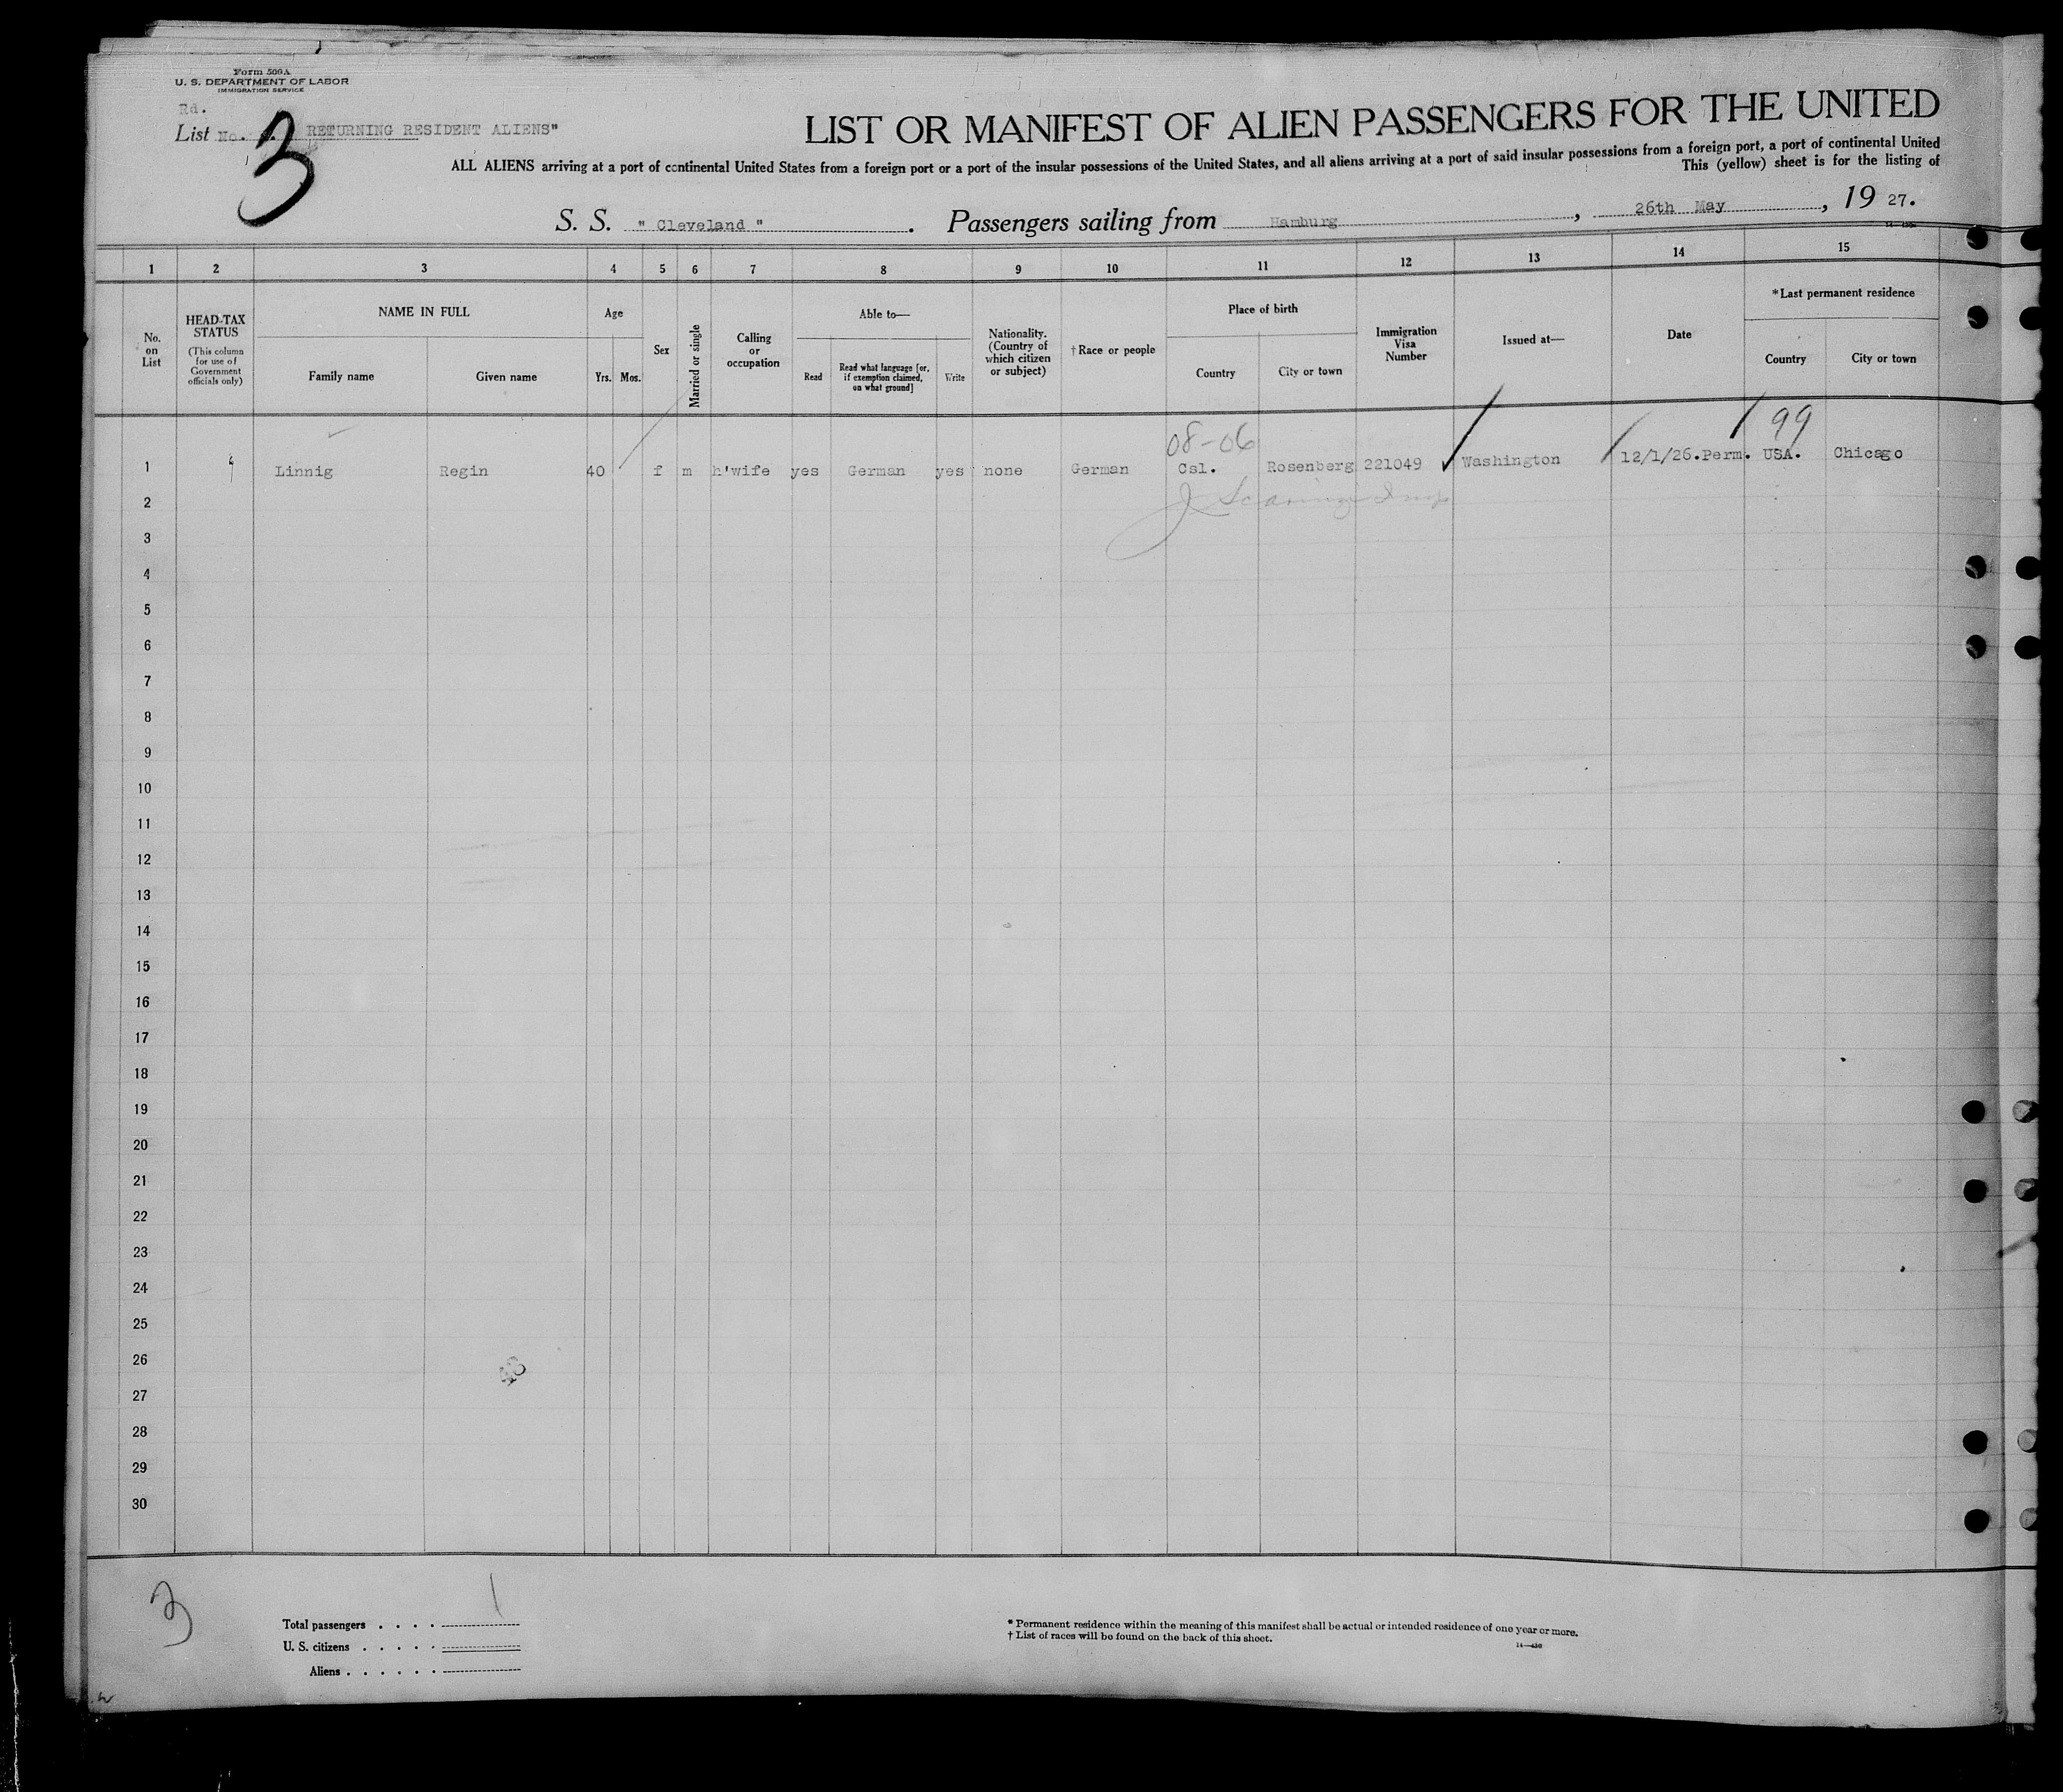 Form 500A
U. S. DEPARTMENT OF LABOR
IMMIGRATION SERVICE
Rd.
List No. RETURNING RESIDENT ALIENS"
3
LIST OR MANIFEST OF ALIEN PASSENGERS FOR THE UNITED
ALL ALIENS arriving at a port of continental United States from a foreign port or a port of the insular possessions of the United States, and all aliens arriving at a port of said insular possessions from a foreign port, a port of continental United
This (yellow) sheet is for the listing of
S. S. " Cleveland " . Passengers sailing from Hamburg , 26th May , 19 27.
1 2 3 4 5 6 7 8 9 10 11 12 13 14 15
No. on List
HEAD-TAX STATUS
(This column for use of Government officials only)
NAME IN FULL
Family name Given name
Age
Yrs. Mos.
Sex
Married or single
Calling or occupation
Able to—
Read
Read what language [or, if exemption claimed, on what ground]
Write
Nationality. (Country of which citizen or subject)
†Race or people
Place of birth
Country City or town
Immigration Visa Number
Issued at—
Date
*Last permanent residence
Country City or town
08-06 99
1 Linnig Regin 40 f m h'wife yes German yes none German Csl. Rosenberg 221049 Washington 12/1/26.Perm. USA. Chicago
2
3
4
5
6
7
8
9
10
11
12
13
14
15
16
17
18
19
20
21
22
23
24
25
26
27
28
29
30
3
Total passengers . . . . 1
U. S. citizens . . . . .
Aliens . . . . . .
* Permanent residence within the meaning of this manifest shall be actual or intended residence of one year or more.
† List of races will be found on the back of this sheet.